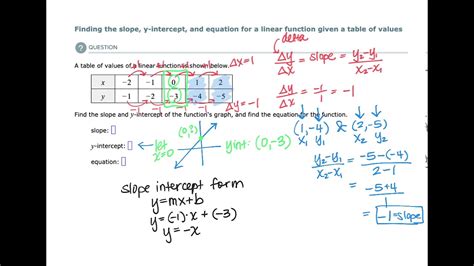 Finding the slope, y-intercept, and equation for a linear function given a table of values
QUESTION
delta
A table of values of a linear function is shown below.
Δx=1
x -2 -1 0 1 2
y -1 -2 -3 -4 -5
-1 -1 -1 -1
Δy=-1
Δy/Δx = slope = y₂-y₁/x₂-x₁
Δy/Δx = -1/1 = -1
Find the slope and y-intercept of the function's graph, and find the equation for the function.
slope:
y-intercept:
equation:
let
x=0
(0,?)
y int: (0,-3)
(1,-4) & (2,-5)
x₁ y₁ x₂ y₂
y₂-y₁/x₂-x₁ = -5-(-4)/2-1
= -5+4/1
= -1=slope
slope intercept form
y=mx+b
y=(-1)·x+(-3)
y=-x